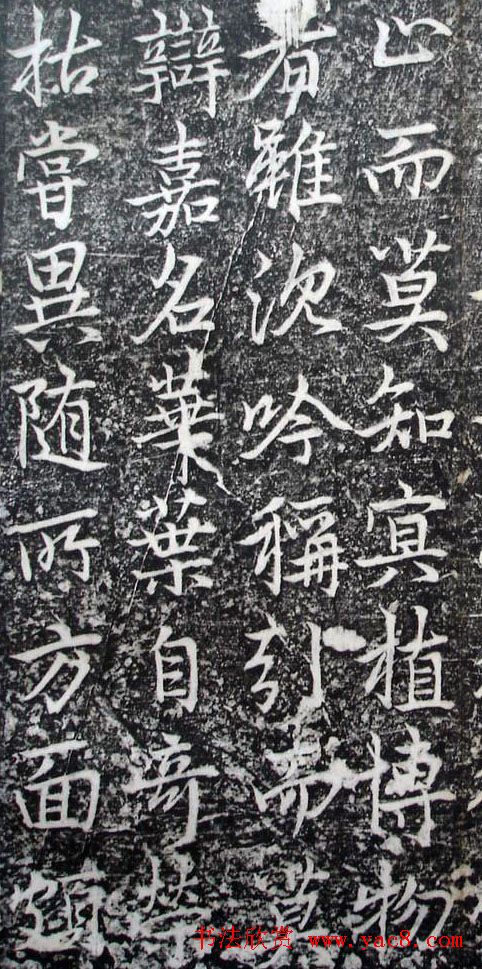 止而莫知㝠植博物
者雖沉吟稱引而莫
辯嘉名華葉自奇榮
枯嘗異随所方面頗
书法欣赏 www.yac8.com